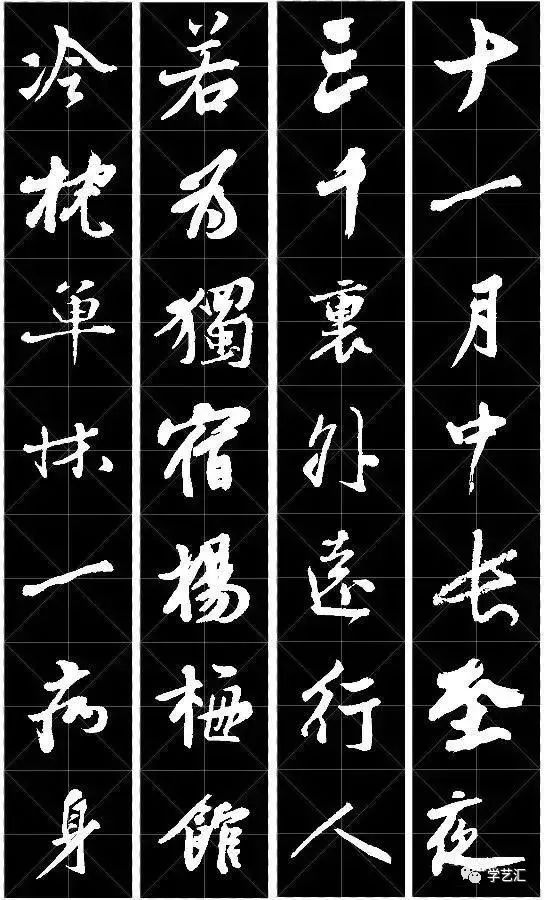 十一月中长至夜
三千裏外遠行人
若为獨宿楊梅館
冷枕单牀一病身
学艺汇